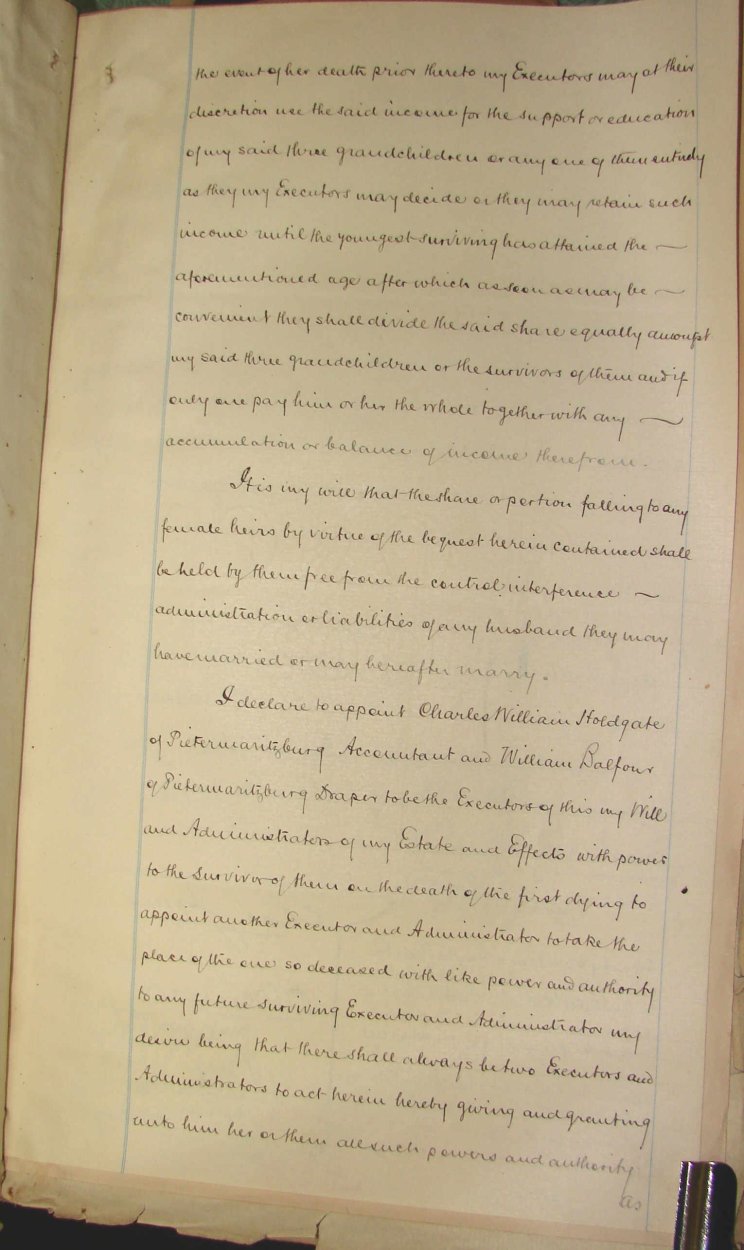 the event of her death prior thereto my Executors may at their
discretion use the said income for the support or education
of my said three grandchildren or any one of them entirely
as they my Executors may decide or they may retain such
income until the youngest surviving has attained the —
aforementioned age after which as soon as may be —
convenient they shall divide the said share equally amongst
my said three grandchildren or the survivors of them and if
only one pay him or her the whole together with any —
accumulation or balance of income therefrom.
It is my will that the share or portion falling to any
female heirs by virtue of the bequest herein contained shall
be held by them free from the control interference —
administration or liabilities of any husband they may
have married or may hereafter marry.
I declare to appoint Charles William Holdgate
of Pietermaritzburg Accountant and William Balfour
of Pietermaritzburg Draper to be the Executors of this my Will
and Administrators of my Estate and Effects with power
to the Survivor of them on the death of the first dying to
appoint another Executor and Administrator to take the
place of the one so deceased with like power and authority
to any future surviving Executor and Administrator my
desire being that there shall always be two Executors and
Administrators to act herein hereby giving and granting
unto him her or them all such powers and authority
as